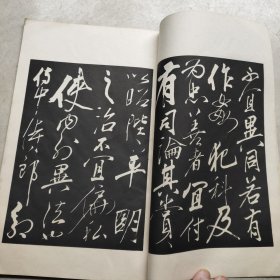 不宜異同若有
作姦犯科及
為忠善者宜付
有司論其刑賞
以昭陛下平明
之治不宜偏私
使內外異法
侍中侍郎郭